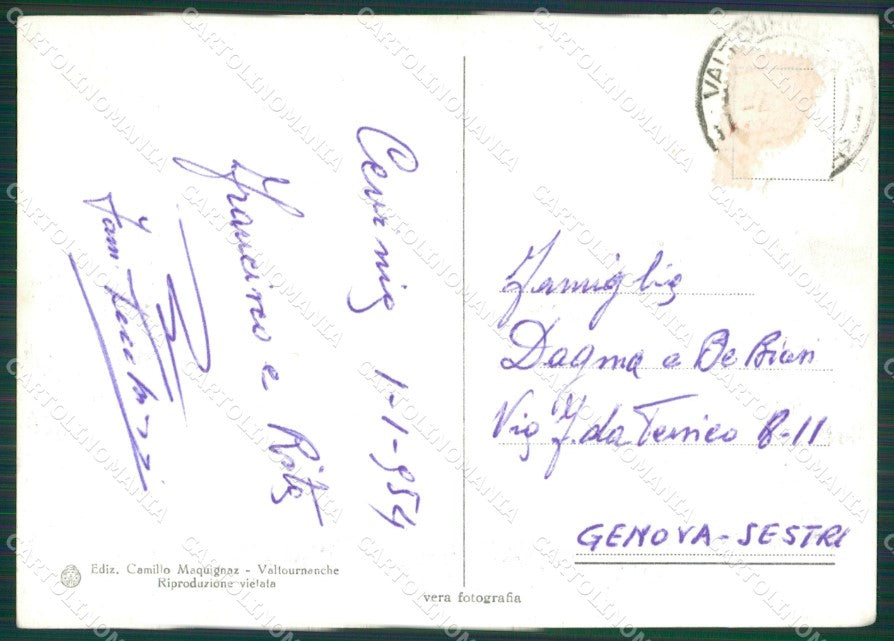 Cervinia 1-1-954
Francino e Rita
Fam.
Famiglia
Dagma e De Bieri
Via F. da Persico 8-11
GENOVA-SESTRI
VALTOURN
Ediz. Camillo Maquignaz - Valtournanche
Riproduzione vietata
vera fotografia
CARTOLINOMANIA